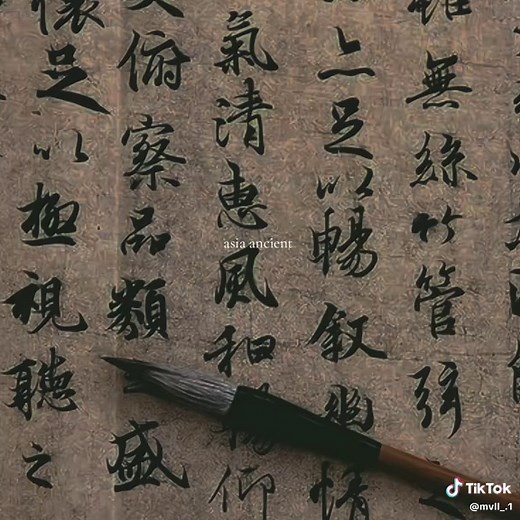 雖無絲竹管弦之
亦足以暢叙幽情
氣清惠風和暢仰
俯察品類之盛
懷足以極視聽之
asia ancient
TikTok
@mvll_.1